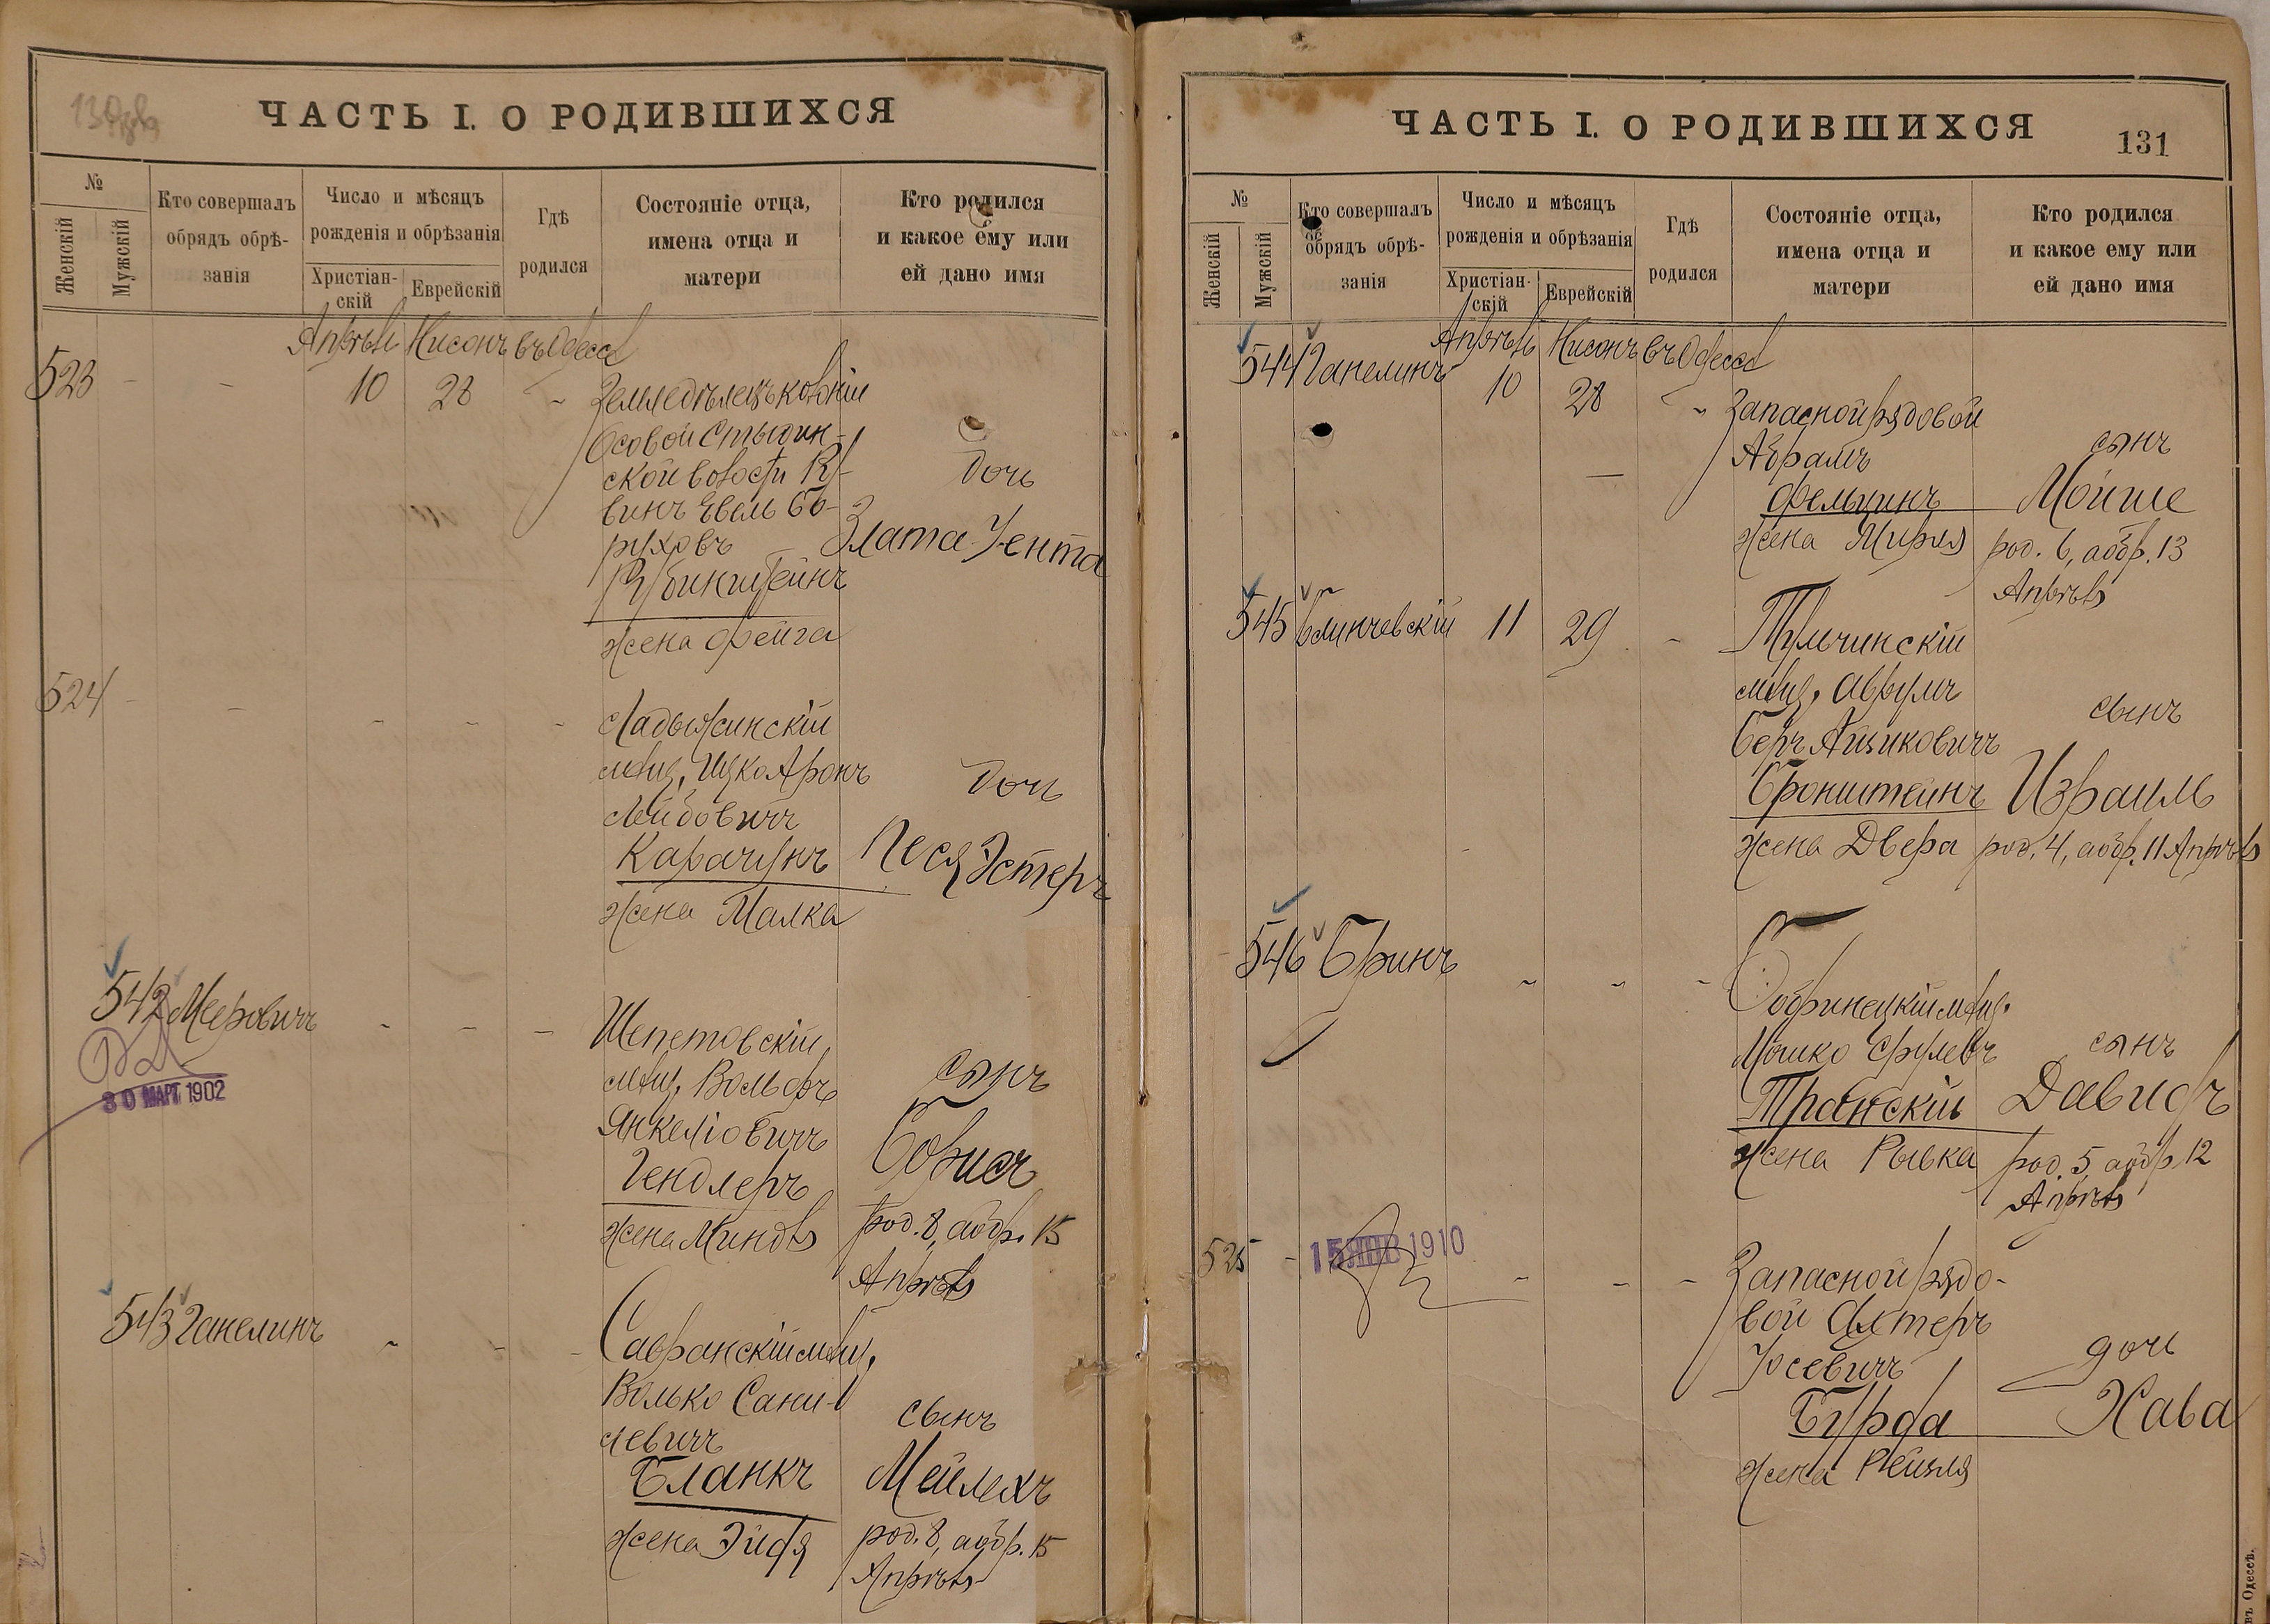 130об
ЧАСТЬ I. О РОДИВШИХСЯ
№
Женскій
Мужскій
Кто совершалъ
обрядъ обрѣ-
занія
Число и мѣсяцъ
рожденія и обрѣзанія
Христіан-
скій
Еврейскій
Гдѣ
родился
Состояніе отца,
имена отца и
матери
Кто родился
и какое ему или
ей дано имя
Апрѣль Нисонъ въ Одессѣ
523 - - 10 28 - Земледѣлецъ Ковенскій
ской волости Ру-
винъ Евель Бо-
руховъ
Рубинштейнъ
жена Фейга
Дочь
Злата-Уента
524 - - - - - Ладыжинскій
мѣщ. Ицко Аронъ
Лейбовичъ
Карачунъ
жена Малка
Дочь
Песя Эстеръ
542 Мееровичъ - - - Шепетовскій
мѣщ. Вольфъ
Янкеліовичъ
Гендлеръ
жена Миндь
сынъ
Борисъ
род. 8, аобр. 15
Апрѣль
30 МАРТ 1902
543 Ганелинъ - - - Савранскій мѣщ.
Волько Сани-
левичъ
Бланкъ
жена Эйдя
сынъ
Мейлехъ
род. 8, аобр. 15
Апрѣль
ЧАСТЬ I. О РОДИВШИХСЯ
131
№
Женскій
Мужскій
Кто совершалъ
обрядъ обрѣ-
занія
Число и мѣсяцъ
рожденія и обрѣзанія
Христіан-
скій
Еврейскій
Гдѣ
родился
Состояніе отца,
имена отца и
матери
Кто родился
и какое ему или
ей дано имя
Апрѣль Нисонъ въ Одессѣ
544 Ганелинъ 10 28 - Запасной рядовой
Абрамъ
Фельцинъ
жена Мирля
сынъ
Мойше
род. 6, аобр. 13
Апрѣль
545 Блинчевскій 11 29 - Тульчинскій
мѣщ. Аврумъ
Беръ Айзиковичъ
Бронштейнъ
жена Двера
сынъ
Израиль
род. 4, аобр. 11 Апрѣль
546 Бринъ - - - Бобринецкій мѣщ.
Мошко Срулевъ
Транскій
жена Рывка
сынъ
Давидъ
род. 5 аобр. 12
Апрѣль
525 - 15 ЯНВ 1910 - - - Запасной рядо-
вой Ахтеръ
Іосевичъ
Бурда
жена Рейзля
дочь
Хава
въ Одессѣ.